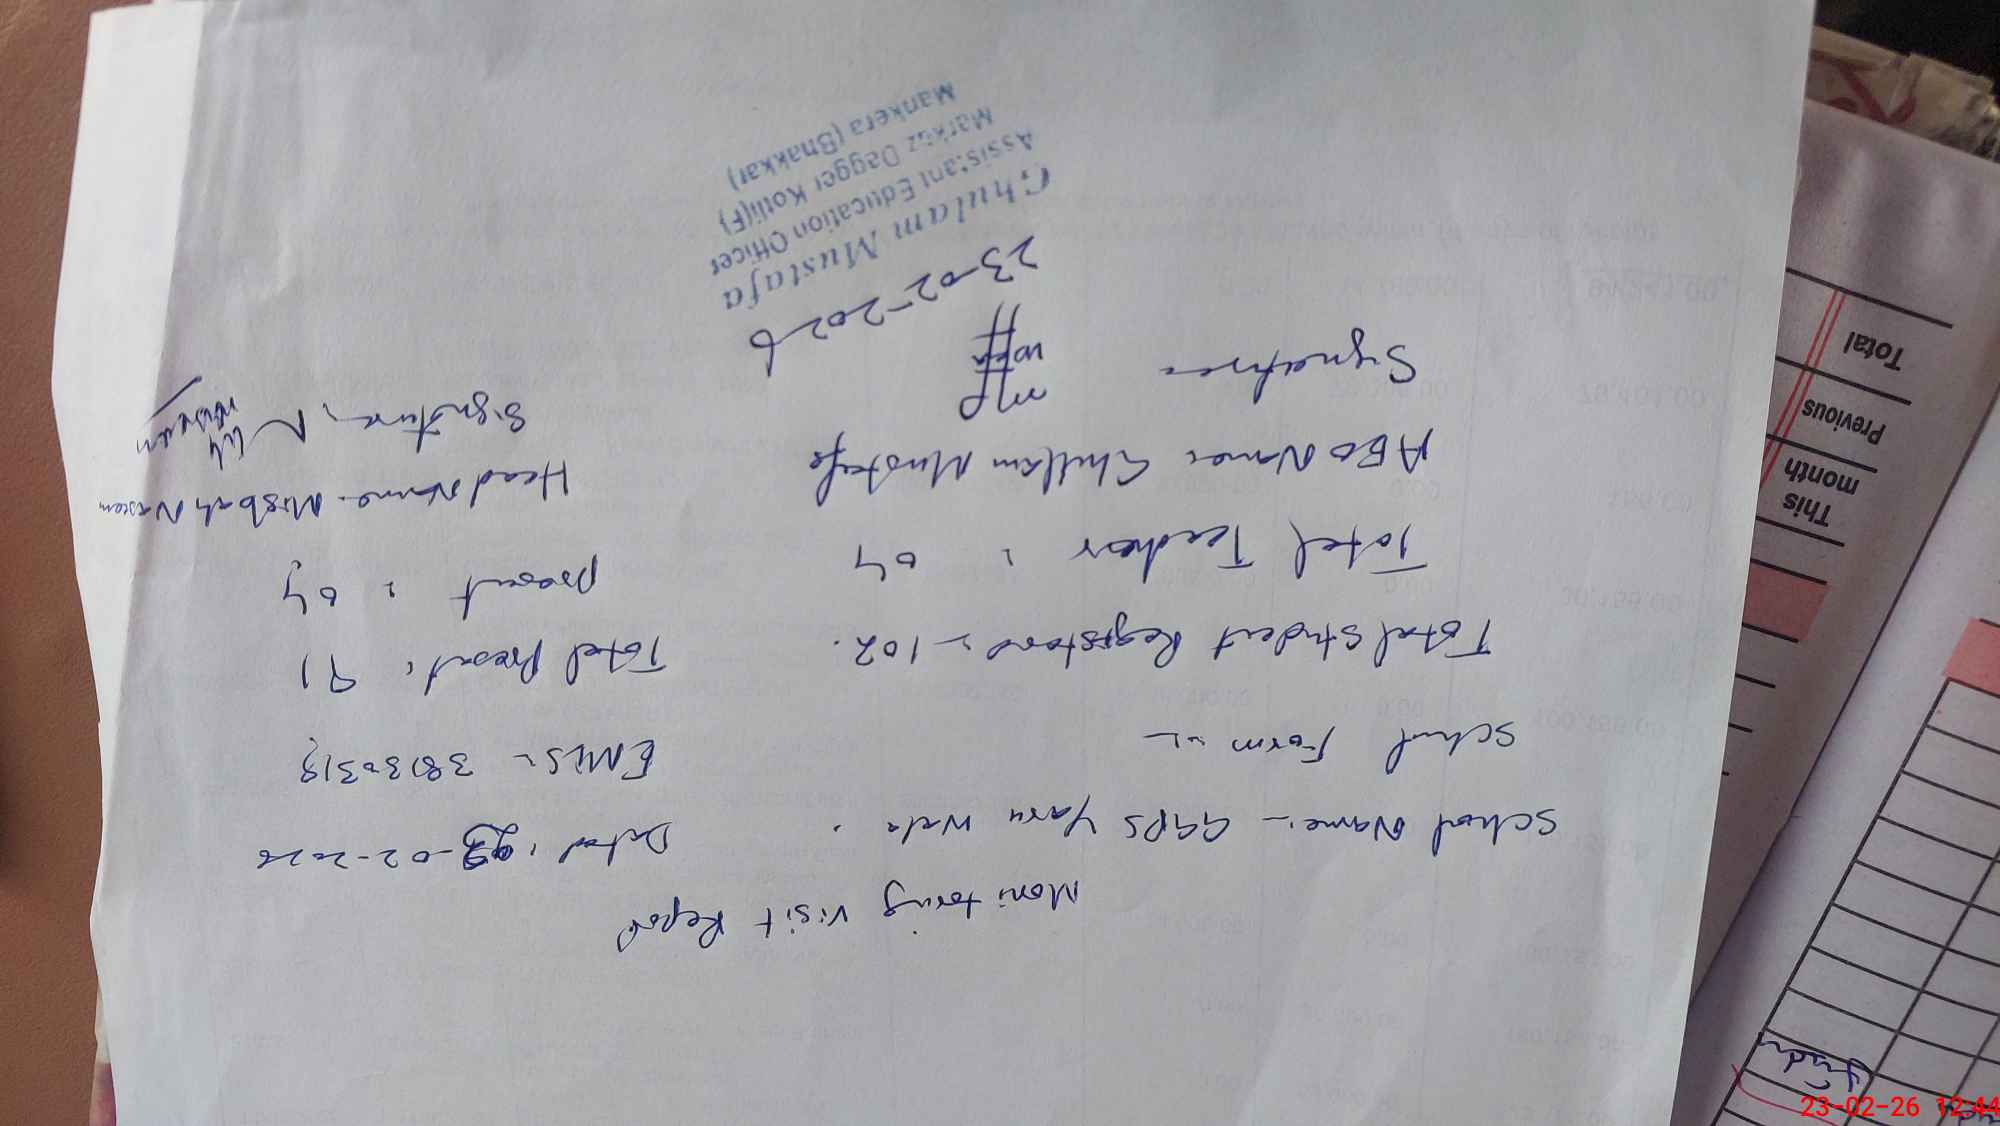 Monitoring Visit Repor
School Name:- GGPS Yaru Wala. Dated: 23-02-2026
School Form :-
EMIS:- 38130319
Total Student Registered:- 102. Total Present: 91
Total Teacher : 04 present : 04
AEO Name: Ghullam Mustafa Head Name. Misbah Naseem
Signature Signature,
23-02-2026
Ghulam Mustafa
Assistant Education Officer
Markaz Dagger Kotli(F)
Mankera (Bhakkar)
This month
Previous
Total
23-02-26 12:44